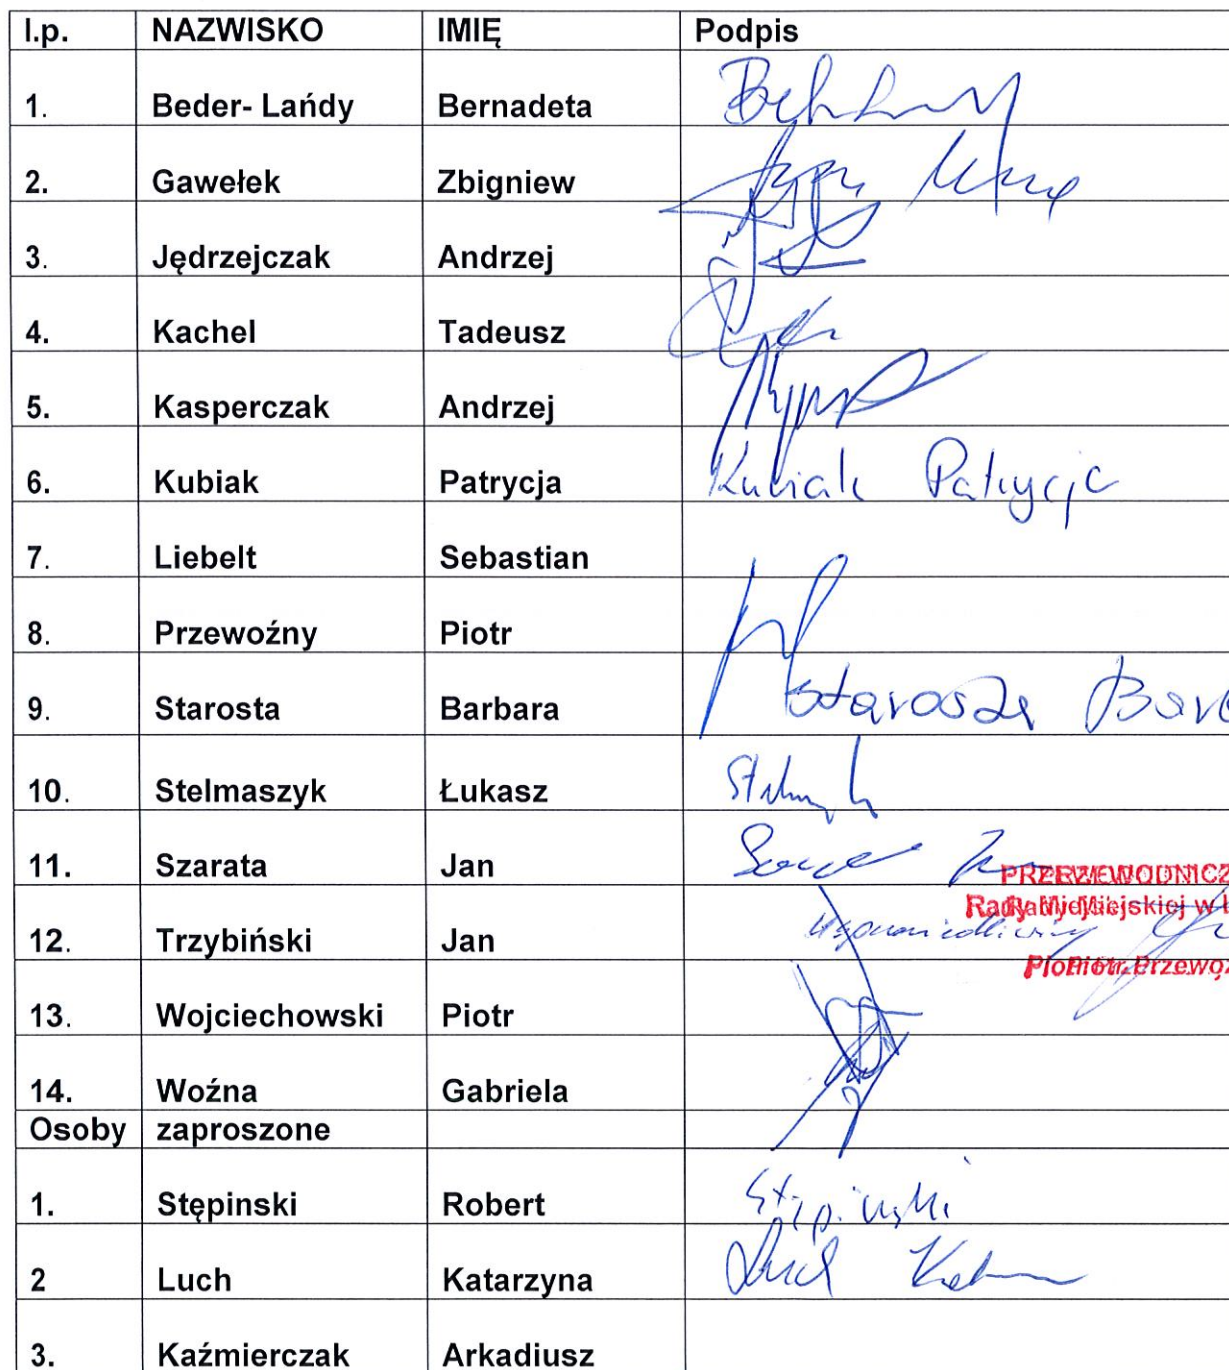 l.p. NAZWISKO IMIĘ Podpis
1. Beder- Lańdy Bernadeta
2. Gawełek Zbigniew
3. Jędrzejczak Andrzej
4. Kachel Tadeusz
5. Kasperczak Andrzej
6. Kubiak Patrycja Kubiak Patrycja
7. Liebelt Sebastian
8. Przewoźny Piotr
9. Starosta Barbara Starosta
10. Stelmaszyk Łukasz
11. Szarata Jan
12. Trzybiński Jan
13. Wojciechowski Piotr
14. Woźna Gabriela
Osoby zaproszone
1. Stępinski Robert Stępiński
2 Luch Katarzyna Luch
3. Kaźmierczak Arkadiusz